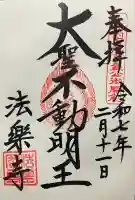 奉拝
令和七年二月十一日
大聖不動明王
法樂寺